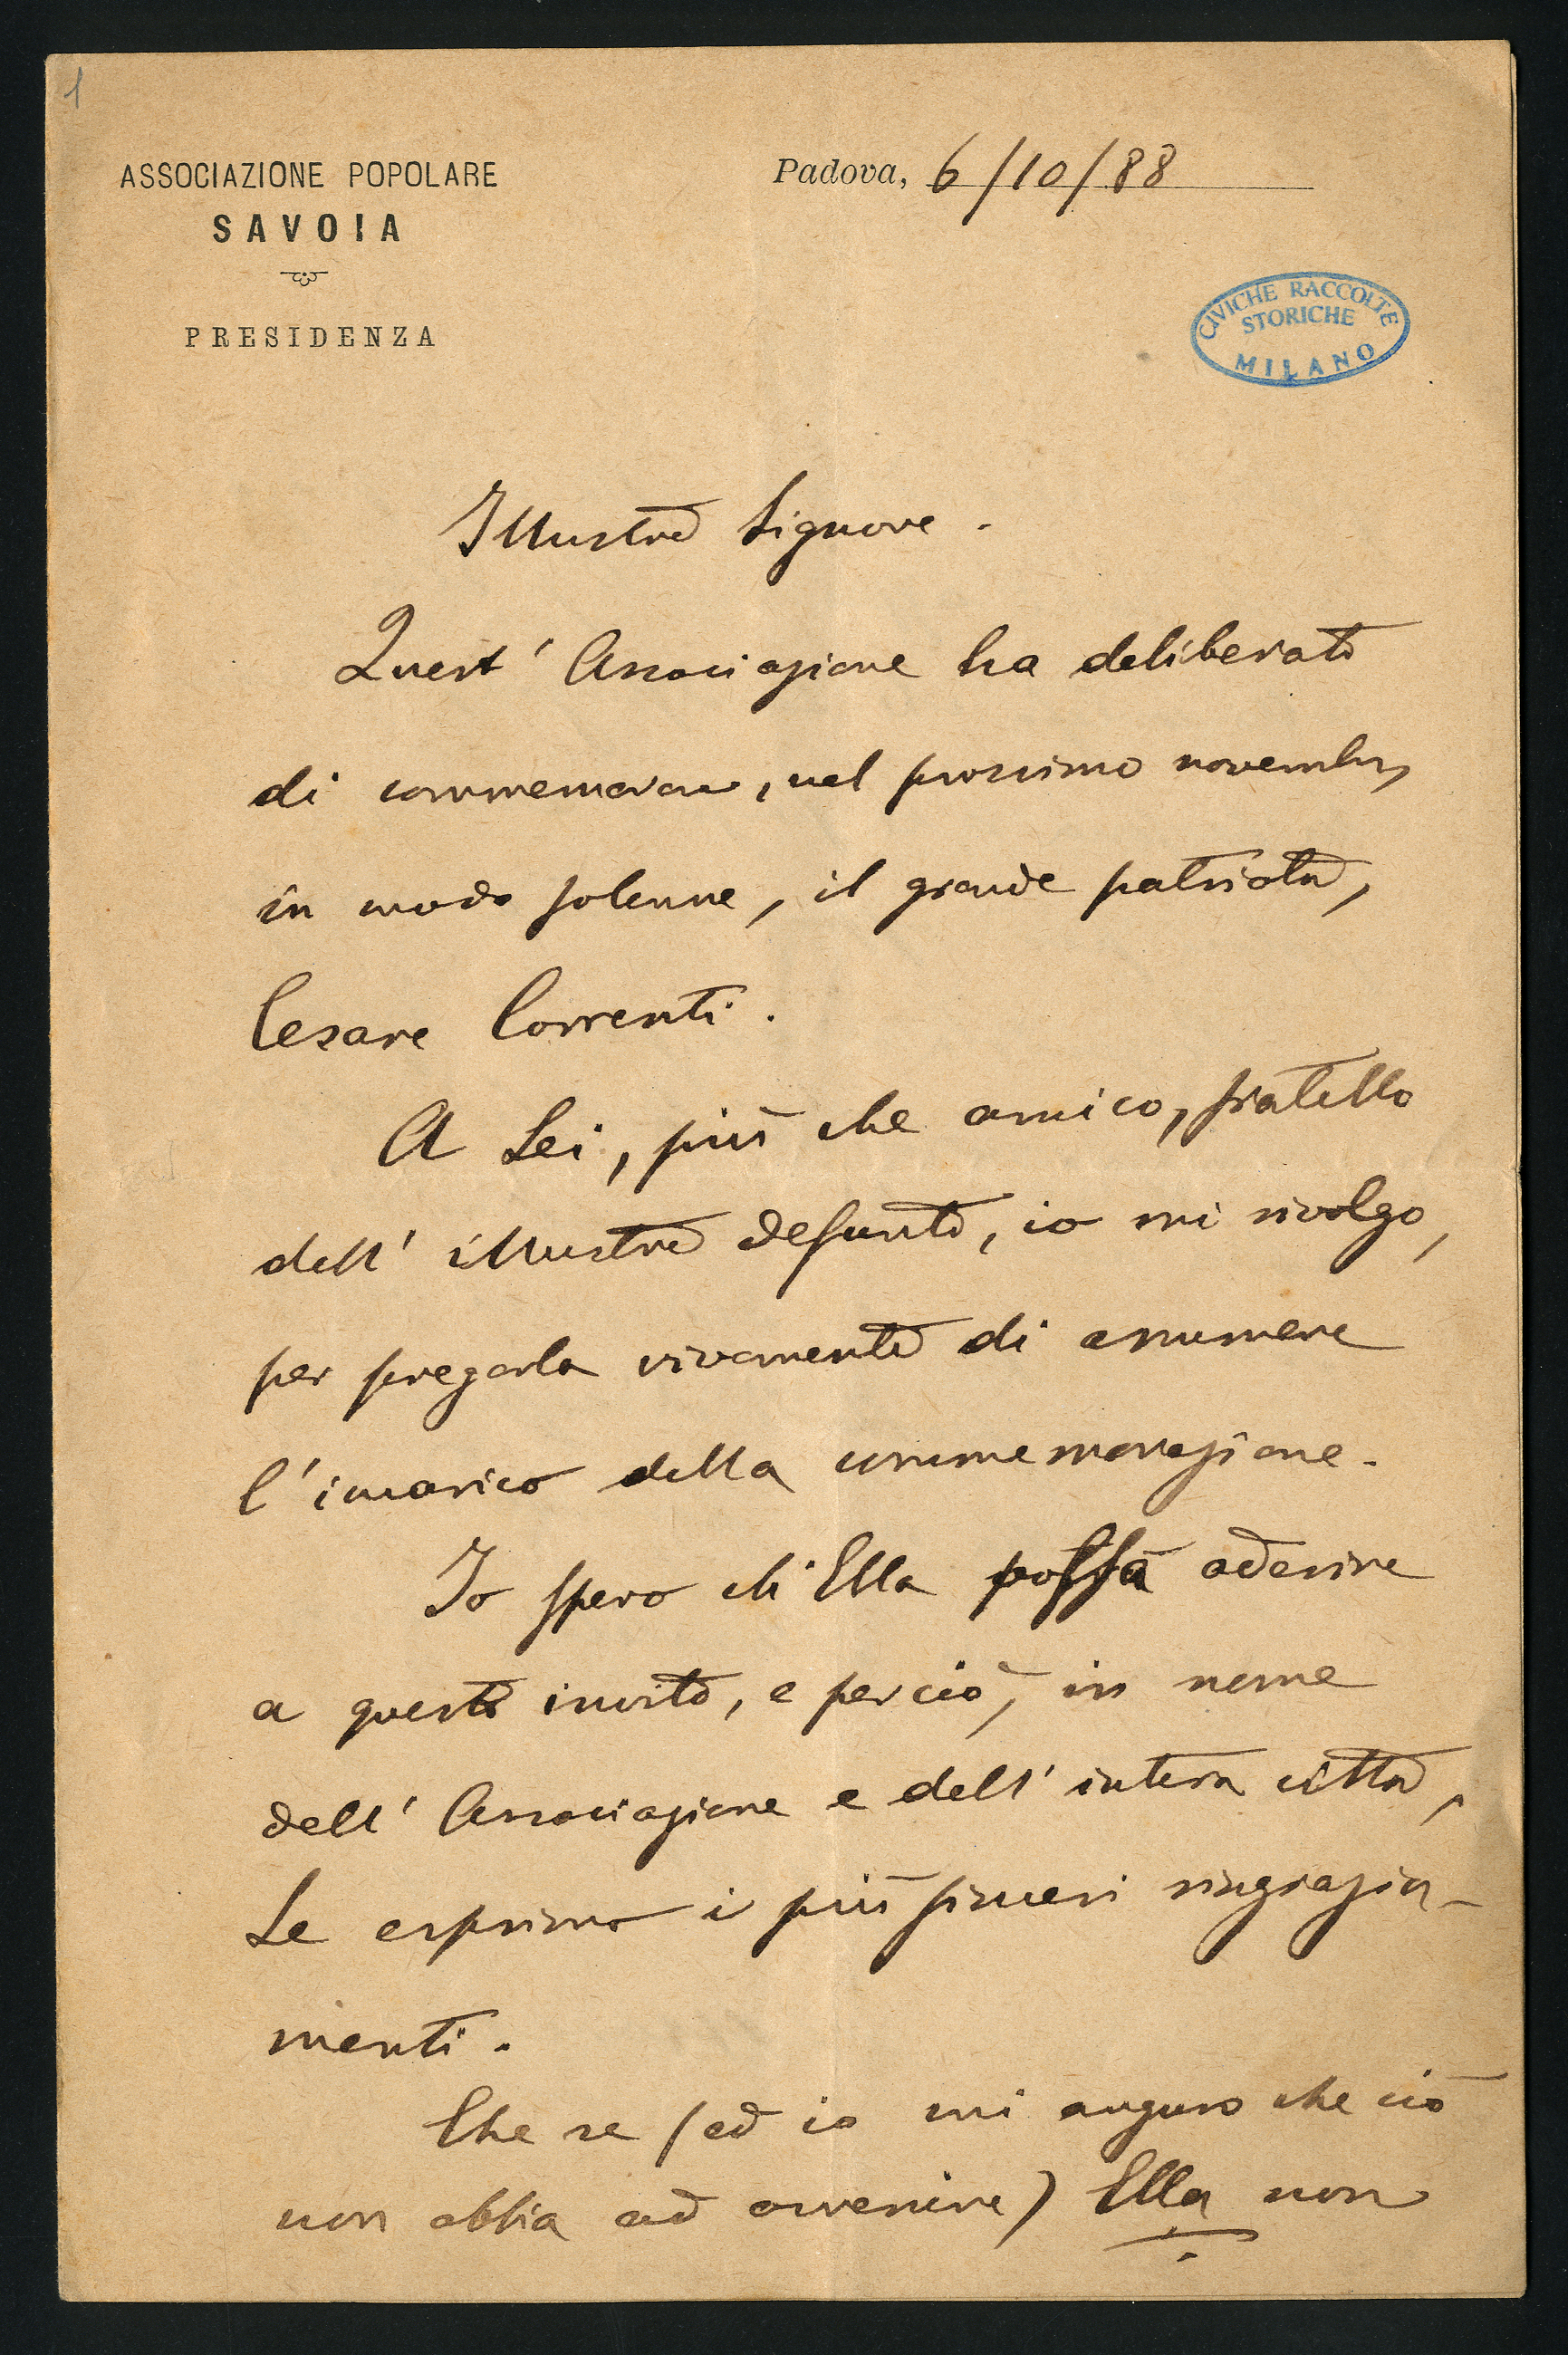 1
ASSOCIAZIONE POPOLARE
SAVOIA
PRESIDENZA
Padova, 6/10/88
CIVICHE RACCOLTE
STORICHE
MILANO
Illustre Signore.
Quest' Associazione ha deliberato
di commemorare, nel prossimo novembre,
in modo solenne, il grande patriota,
Cesare Correnti.
A Lei, più che amico, fratello
dell' illustre defunto, io mi rivolgo,
per pregarla vivamente di assumere
l'incarico della commemorazione.
Io spero ch'Ella possa aderire
a questo invito, e perciò, in nome
dell' Associazione e dell' intera città,
Le esprimo i più sinceri ringrazia-
menti.
Che se (ed io mi auguro che ciò
non abbia ad avvenire) Ella non